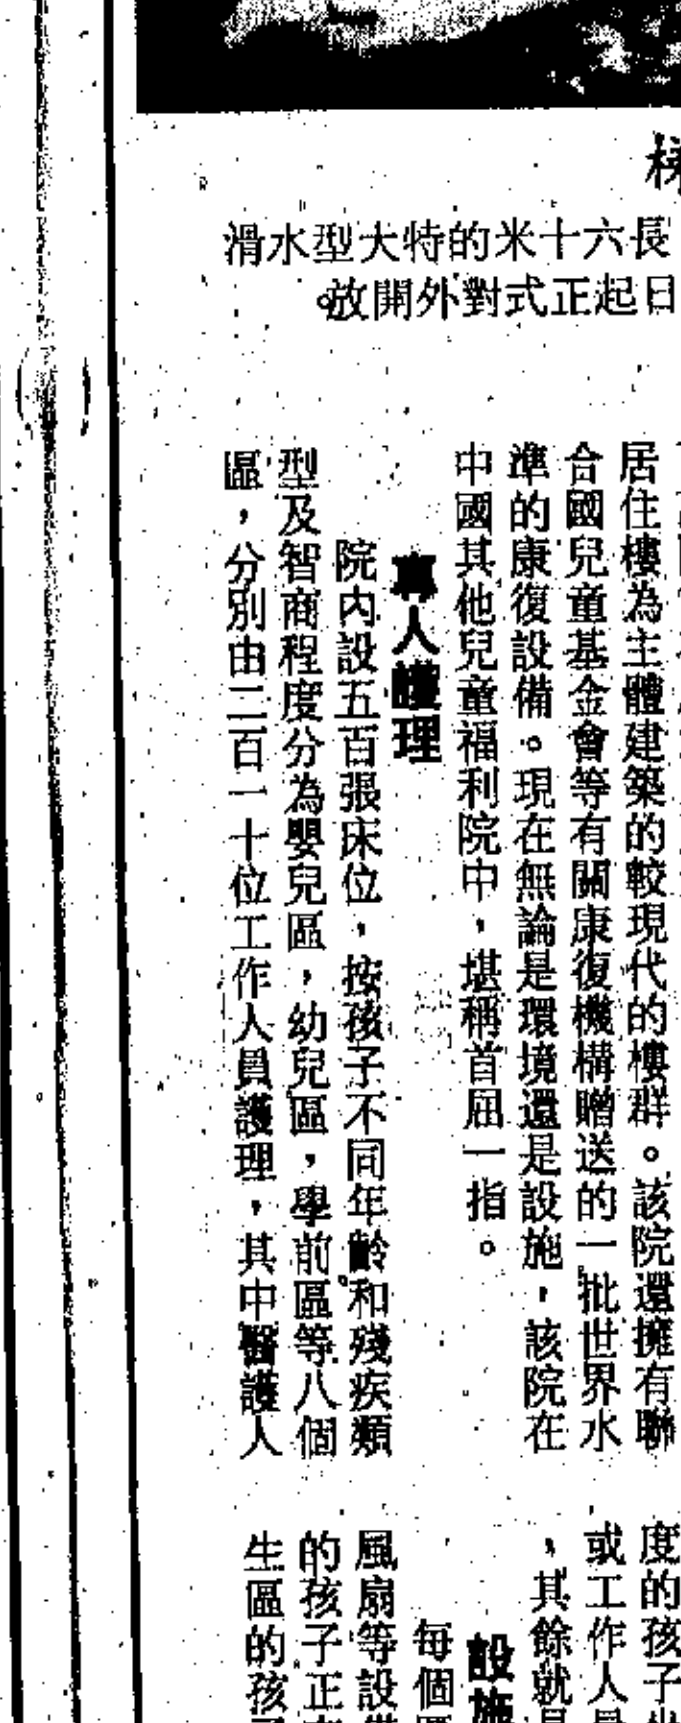 長六十米的特大型水滑
日起正式對外開放。
居住樓為主體建築的較現代的樓群。該院還擁有聯
合國兒童基金會等有關康復機構贈送的一批世界水
準的康復設備。現在無論是環境還是設施，該院在
中國其他兒童福利院中，堪稱首屈一指。
專人護理
院內設五百張床位，按孩子不同年齡和殘疾類
型及智商程度分為嬰兒區，幼兒區，學前區等八個
區，分別由二百一十位工作人員護理，其中醫護人
度的孩子
或工作人員
，其餘就是
設施
每個區
風扇等設備
的孩子正在
生區的孩子